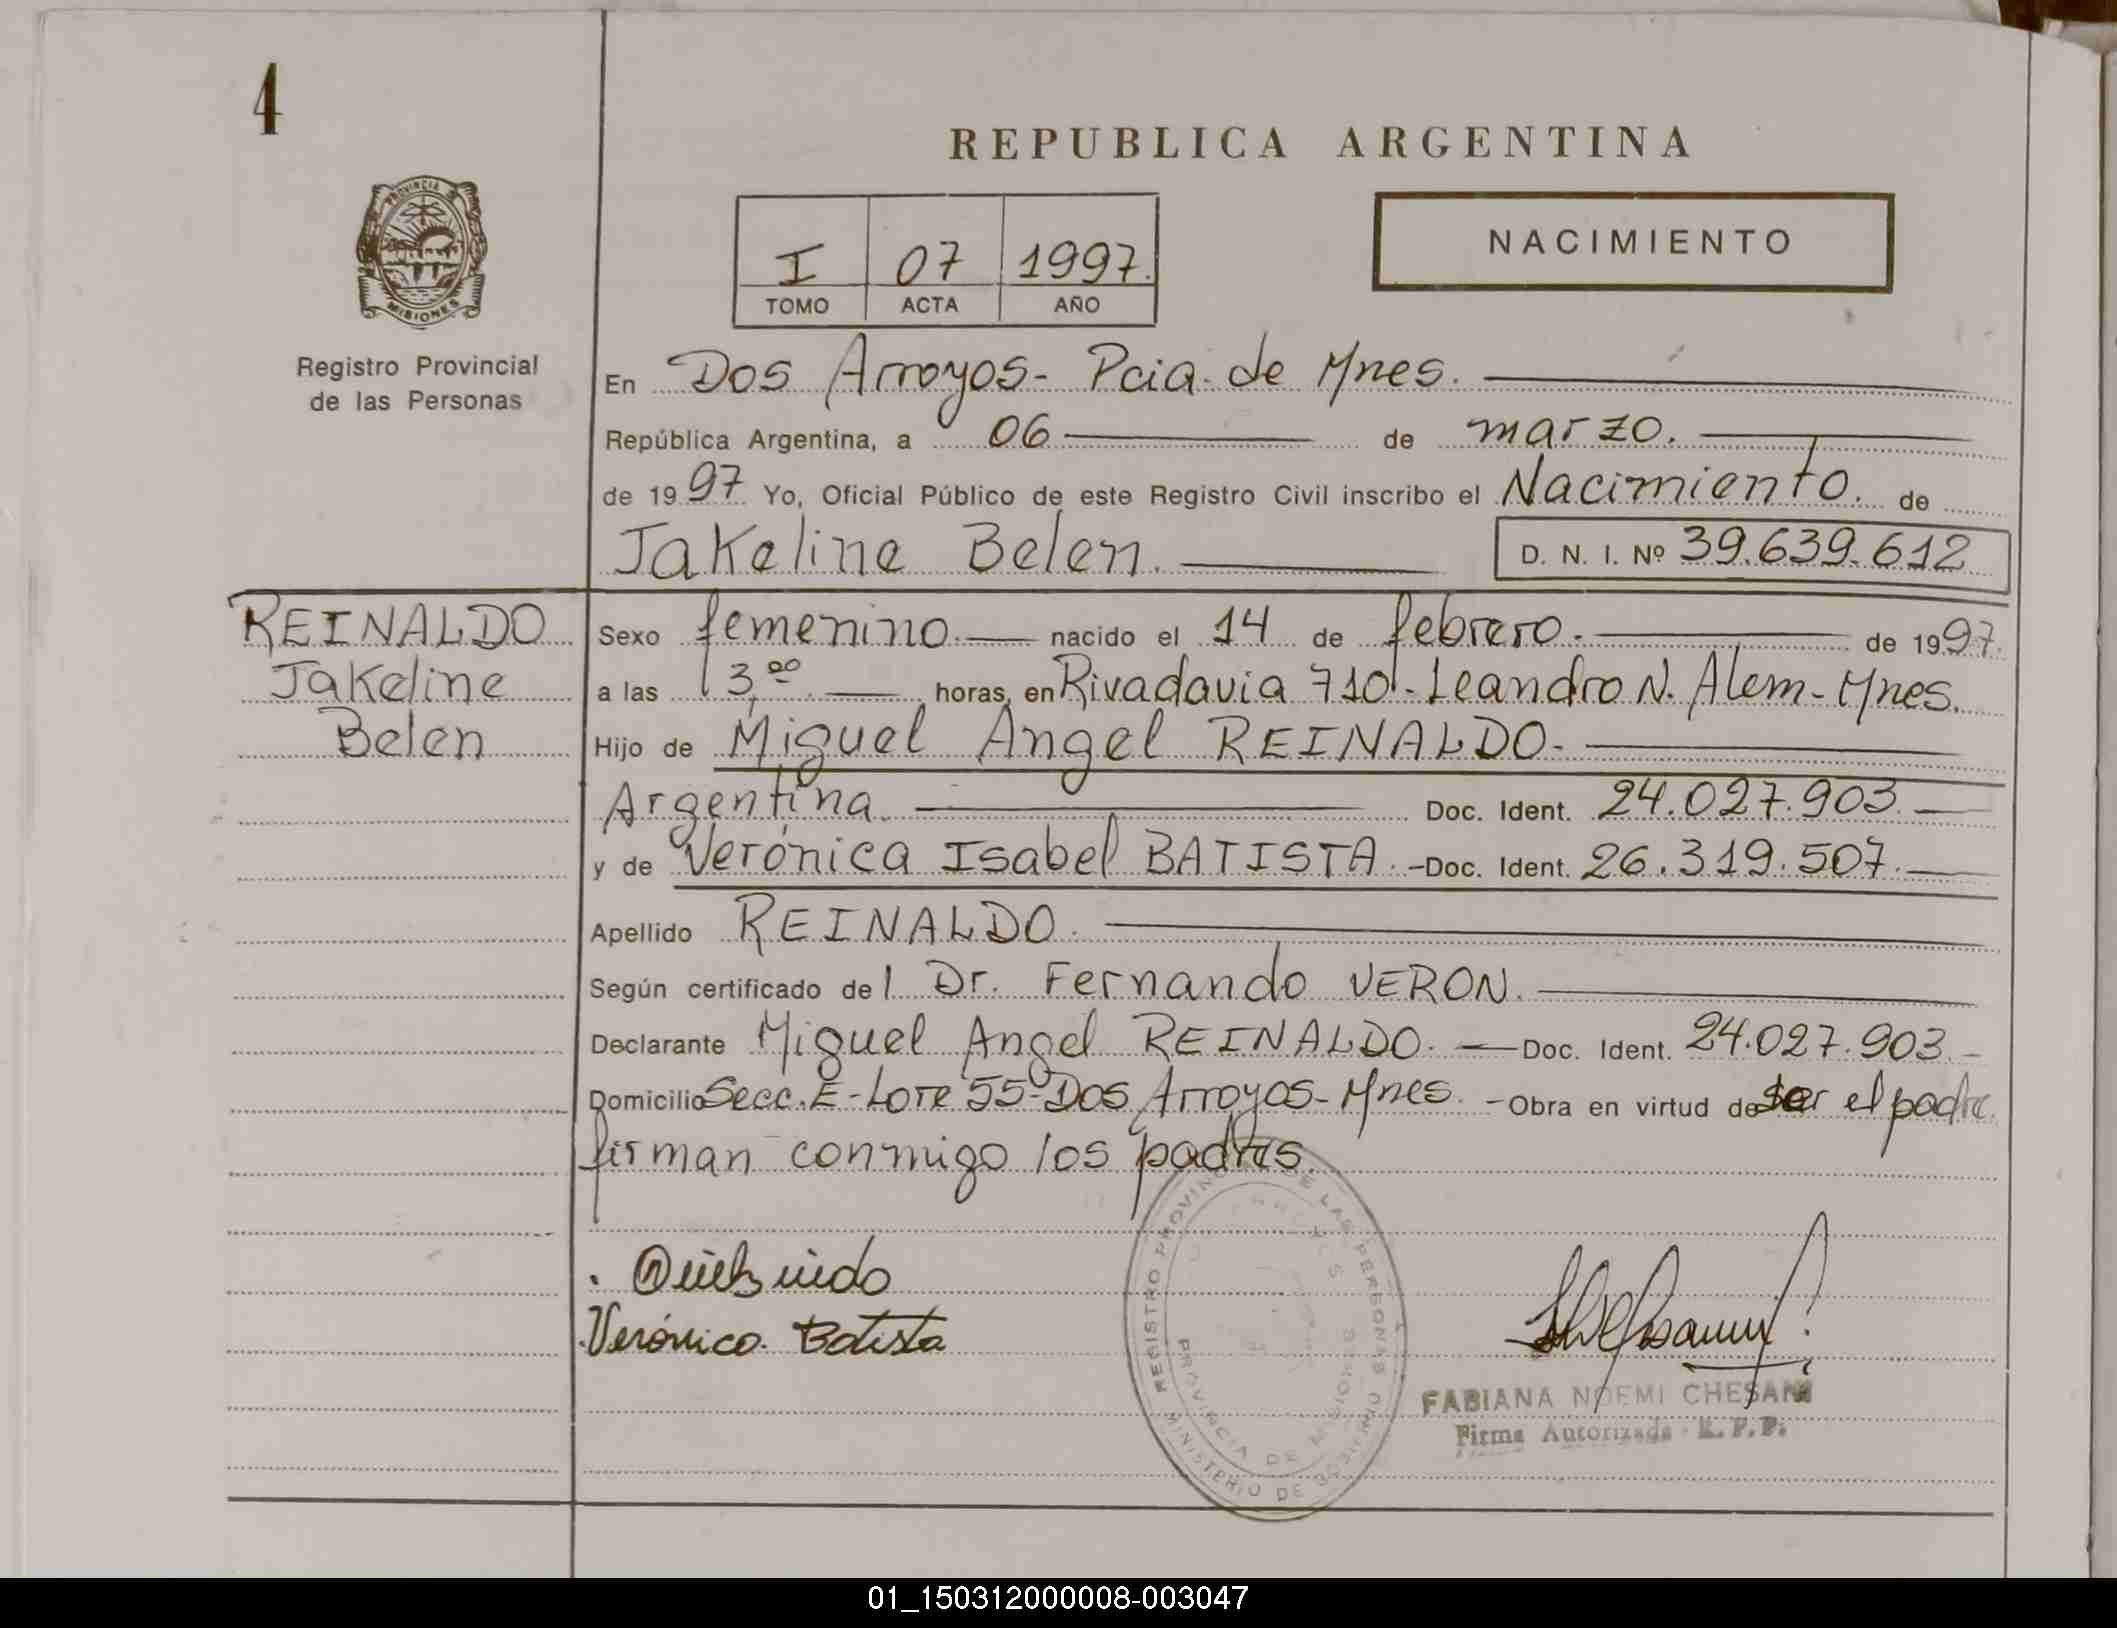 4
REPUBLICA ARGENTINA
PROVINCIA DE
MISIONES
Registro Provincial
de las Personas
I 07 1997.
TOMO ACTA AÑO
NACIMIENTO
En Dos Arroyos- Pcia. de Mnes.
República Argentina, a 06 de marzo.
de 1997 Yo, Oficial Público de este Registro Civil inscribo el Nacimiento. de
Jakeline Belen.
D. N. I. Nº 39.639.612
REINALDO
Jakeline
Belen
Sexo femenino. nacido el 14 de febrero. de 1997.
a las 13,00 horas, en Rivadavia 710 - Leandro N. Alem - Mnes.
Hijo de Miguel Angel REINALDO.
Argentina. Doc. Ident. 24.027.903
y de Verónica Isabel BATISTA. -Doc. Ident. 26.319.507.
Apellido REINALDO.
Según certificado del Dr. Fernando VERON.
Declarante Miguel Angel REINALDO. —Doc. Ident. 24.027.903.-
Domicilio Secc. E - Lote 55 - Dos Arroyos - Mnes. -Obra en virtud de ser el padre
firman conmigo los padres.
Verónica Batista
REGISTRO PROVINCIAL DE LAS PERSONAS
PROVINCIA DE MISIONES
MINISTERIO DE GOBIERNO
FABIANA NOEMI CHESANI
Firma Autorizada - R.P.P.
01_150312000008-003047